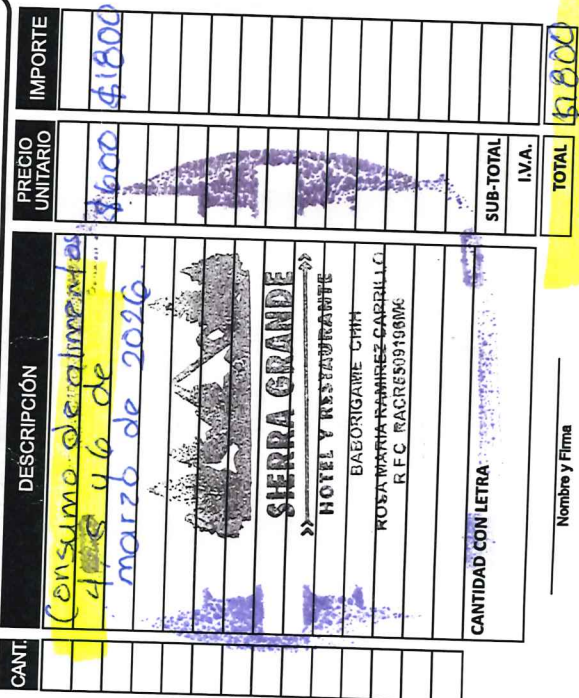 CANT. DESCRIPCIÓN PRECIO UNITARIO IMPORTE
Consumo de alimentos $600 $1800
4 5 y 6 de
marzo de 2026.
SIERRA GRANDE
HOTEL Y RESTAURANTE
BABORIGAME CHIH
ROSA MARIA RAMIREZ CARRILLO
CANTIDAD CON LETRA
SUB-TOTAL
I.V.A.
TOTAL $1800
Nombre y Firma